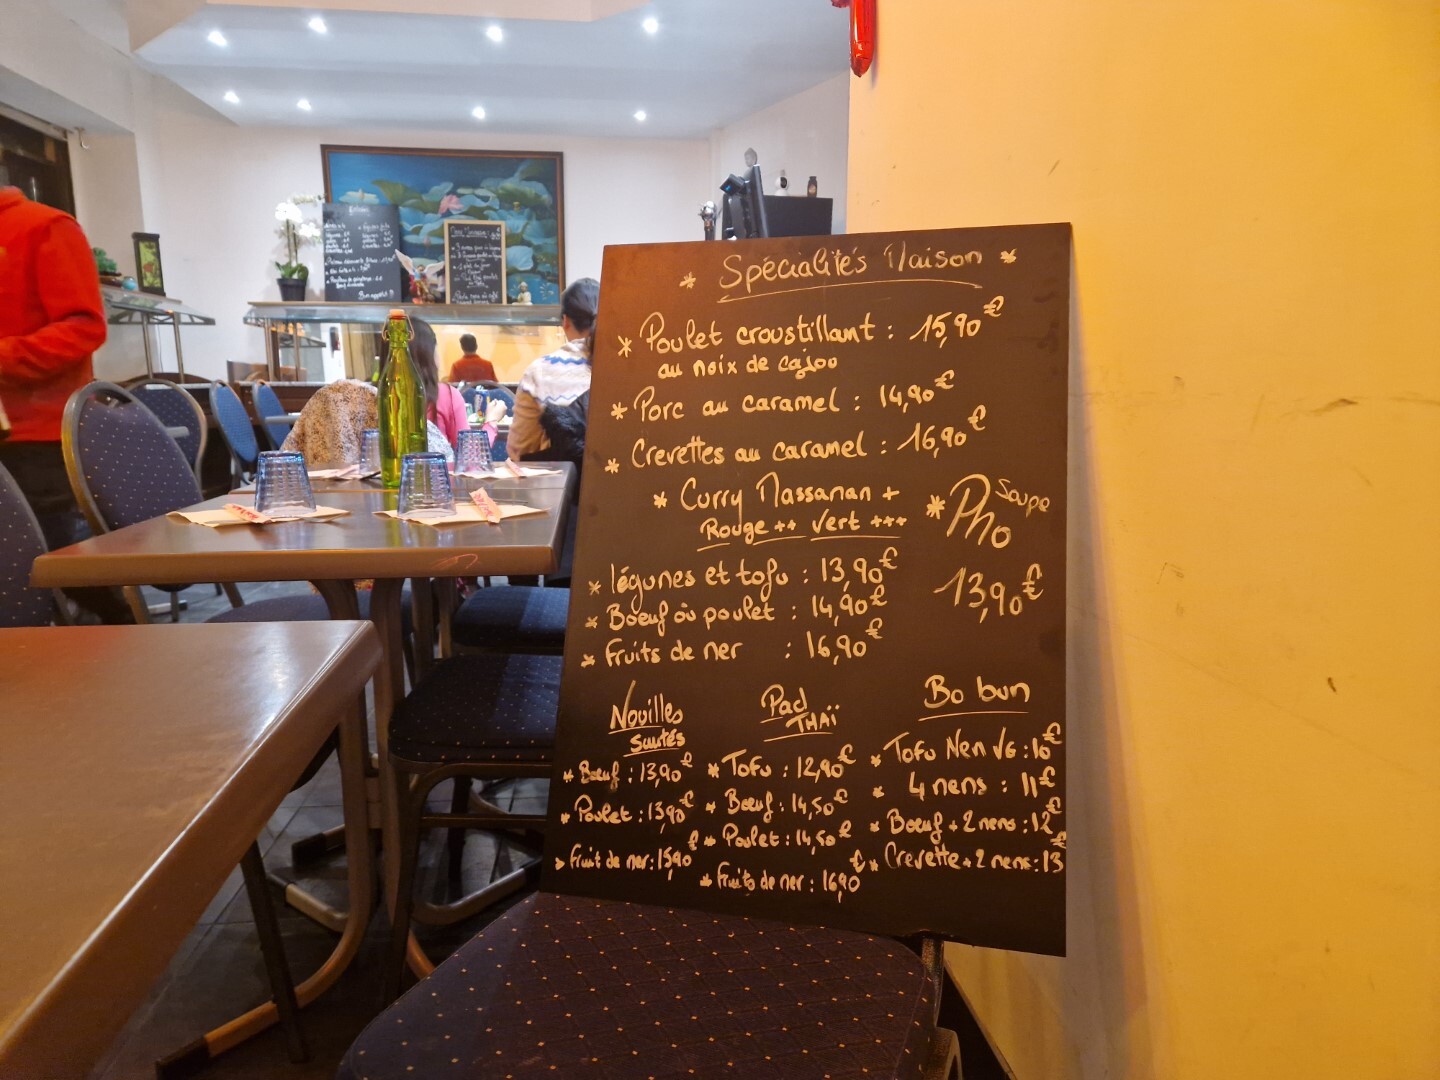 * Spécialités Maison *
* Poulet croustillant : 15,90€
au noix de cajou
* Porc au caramel : 14,90€
* Crevettes au caramel : 16,90€
* Curry Massaman +
Rouge ++ Vert +++
* Soupe
Pho
13,90€
* légumes et tofu : 13,90€
* Boeuf où poulet : 14,90€
* Fruits de mer : 16,90€
Nouilles
sautés
* Boeuf : 13,90€
* Poulet : 13,90€
* Fruit de mer : 15,90€
Pad
THAÏ
* Tofu : 12,90€
* Boeuf : 14,50€
* Poulet : 14,50€
* Fruits de mer : 16,90€
Bo bun
* Tofu Nem VG : 10€
* 4 nems : 11€
* Boeuf + 2 nems : 12€
* Crevette + 2 nems : 13€